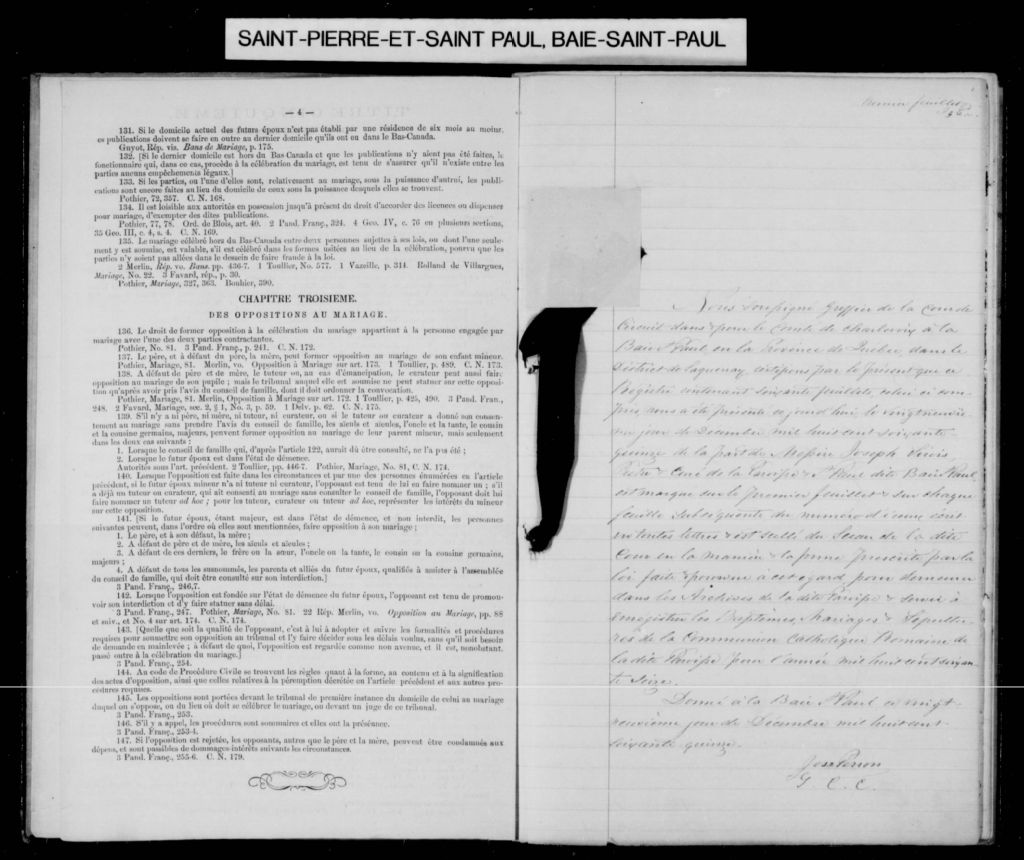 SAINT-PIERRE-ET-SAINT PAUL, BAIE-SAINT-PAUL
— 4 —
131. Si le domicile actuel des futurs époux n'est pas établi par une résidence de six mois au moins,
ces publications doivent se faire en outre au dernier domicile qu'ils ont eu dans le Bas-Canada.
Guyot, Rép. vis. Bans de Mariage, p. 175.
132. [Si le dernier domicile est hors du Bas-Canada et que les publications n'y aient pas été faites, le
fonctionnaire qui, dans ce cas, procède à la célébration du mariage, est tenu de s'assurer qu'il n'existe entre les
parties aucuns empêchements légaux.]
133. Si les parties, ou l'une d'elles sont, relativement au mariage, sous la puissance d'autrui, les publi-
cations sont encore faites au lieu du domicile de ceux sous la puissance desquels elles se trouvent.
Pothier, 72, 357. C. N. 168.
134. Il est loisible aux autorités en possession jusqu'à présent du droit d'accorder des licences ou dispenses
pour mariage, d'exempter des dites publications.
Pothier, 77, 78. Ord. de Blois, art. 40. 2 Pand. Franç., 324. 4 Geo. IV, c. 76 en plusieurs sections,
35 Geo. III, c. 4, s. 4. C. N. 169.
135. Le mariage célébré hors du Bas-Canada entre deux personnes sujettes à ses lois, ou dont l'une seule-
ment y est soumise, est valable, s'il est célébré dans les formes usitées au lieu de la célébration, pourvu que les
parties n'y soient pas allées dans le dessein de faire fraude à la loi.
2 Merlin, Rép. vo. Bans. pp. 436-7. 1 Toullier, No. 577. 1 Vazeille, p. 314. Rolland de Villargues,
Mariage, No. 22. 3 Favard, rép., p. 30.
Pothier, Mariage, 327, 363. Bouhier, 390.
CHAPITRE TROISIEME.
DES OPPOSITIONS AU MARIAGE.
136. Le droit de former opposition à la célébration du mariage appartient à la personne engagée par
mariage avec l'une des deux parties contractantes.
Pothier, No. 81. 3 Pand. Franç., p. 241. C. N. 172.
137. Le père, et à défaut du père, la mère, peut former opposition au mariage de son enfant mineur.
Pothier, Mariage, 81. Merlin, vo. Opposition à Mariage sur art. 173. 1 Toullier, p. 489. C. N. 173.
138. A défaut de père et de mère, le tuteur ou, au cas d'émancipation, le curateur peut aussi faire
opposition au mariage de son pupile; mais le tribunal auquel elle est soumise ne peut statuer sur cette opposi-
tion qu'après avoir pris l'avis du conseil de famille, dont il doit ordonner la convocation.
Pothier, Mariage, 81. Merlin, Opposition à Mariage sur art. 172. 1 Toullier, p. 425, 490. 3 Pand. Fran.,
248. 2 Favard, Mariage, sec. 2, § 1, No. 3, p. 59. 1 Delv. p. 62. C. N. 175.
139. S'il n'y a ni père, ni mère, ni tuteur, ni curateur, ou si le tuteur ou curateur a donné son consen-
tement au mariage sans prendre l'avis du conseil de famille, les aïeuls et aïeules, l'oncle et la tante, le cousin
et la cousine germains, majeurs, peuvent former opposition au mariage de leur parent mineur, mais seulement
dans les deux cas suivants :
1. Lorsque le conseil de famille qui, d'après l'article 122, aurait dû être consulté, ne l'a pas été ;
2. Lorsque le futur époux est dans l'état de démence.
Autorités sous l'art. précédent. 2 Toullier, pp. 446-7. Pothier, Mariage, No. 81, C. N. 174.
140. Lorsque l'opposition est faite dans les circonstances et par une des personnes énumérées en l'article
précédent, si le futur époux mineur n'a ni tuteur ni curateur, l'opposant est tenu de lui en faire nommer un ; s'il
a déjà un tuteur ou curateur, qui ait consenti au mariage sans consulter le conseil de famille, l'opposant doit lui
faire nommer un tuteur ad hoc ; pour les tuteur, curateur ou tuteur ad hoc, représenter les intérêts du mineur
sur cette opposition.
141. [Si le futur époux, étant majeur, est dans l'état de démence, et non interdit, les personnes
suivantes peuvent, dans l'ordre où elles sont mentionnées, faire opposition à son mariage ;
1. Le père, et à son défaut, la mère ;
2. A défaut de père et de mère, les aïeuls et aïeules ;
3. A défaut de ces derniers, le frère ou la sœur, l'oncle ou la tante, le cousin ou la cousine germains,
majeurs ;
4. A défaut de tous les susnommés, les parents et alliés du futur époux, qualifiés à assister à l'assemblée
du conseil de famille, qui doit être consulté sur son interdiction.]
3 Pand. Franç., 246,7.
142. Lorsque l'opposition est fondée sur l'état de démence du futur époux, l'opposant est tenu de promou-
voir son interdiction et d'y faire statuer sans délai.
3 Pand. Franç., 247. Pothier, Mariage, No. 81. 22 Rép. Merlin, vo. Opposition au Mariage, pp. 88
et suiv., et No. 4 sur art. 174. C. N. 174.
143. [Quelle que soit la qualité de l'opposant, c'est à lui à adopter et suivre les formalités et procédures
requises pour soumettre son opposition au tribunal et l'y faire décider sous les délais voulus, sans qu'il soit besoin
de demande en mainlevée ; à défaut de quoi, l'opposition est regardée comme non avenue, et il est, nonobstant,
passé outre à la célébration du mariage.]
3 Pand. Franç., 254.
144. Au code de Procédure Civile se trouvent les règles quant à la forme, au contenu et à la signification
des actes d'opposition, ainsi que celles relatives à la péremption décrétée en l'article précédent et aux autres pro-
cédures requises.
145. Les oppositions sont portées devant le tribunal de première instance du domicile de celui au mariage
duquel on s'oppose, ou du lieu où doit se célébrer le mariage, ou devant un juge de ce tribunal.
3 Pand. Franç., 253.
146. S'il y a appel, les procédures sont sommaires et elles ont la préséance.
3 Pand. Franç., 253-4.
147. Si l'opposition est rejetée, les opposants, autres que le père et la mère, peuvent être condamnés aux
dépens, et sont passibles de dommages-intérêts suivants les circonstances.
3 Pand. Franç., 255-6. C. N. 179.
Premier feuillet
Nous soussigné Greffier de la Cour de
Circuit dans & pour le Comté de Charlevoix à la
Baie St Paul, en la Province de Québec, dans le
District de Saguenay, certifions par le présent que ce
Régistre contenant soixante feuillets, celui ci com-
pris, nous a été présenté ce jourd'hui, le vingt neuviè-
me jour de Décembre mil huit cent soixante
quinze de la part de Messire Joseph
Prêtre & Curé de la Paroisse St Pierre dite Baie St Paul,
est marqué sur le premier feuillet & sur chaque
feuille subséquente du numéro d'iceux écrit
en toutes lettres & est scellé du Sceau de la dite
Cour en la manière & la forme prescrite par la
loi faite & pourvue à cet égard pour demeurer
dans les Archives de la dite Paroisse & servir à
enregistrer les Baptêmes, Mariages & Sépultu-
res de la Communion Catholique Romaine de
la dite Paroisse pour l'année mil huit cent soixan-
te Seize.
Donné à la Baie St Paul ce vingt-
neuvième jour de Décembre mil huit cent
soixante quinze.
Jos Perron
G. C. C.